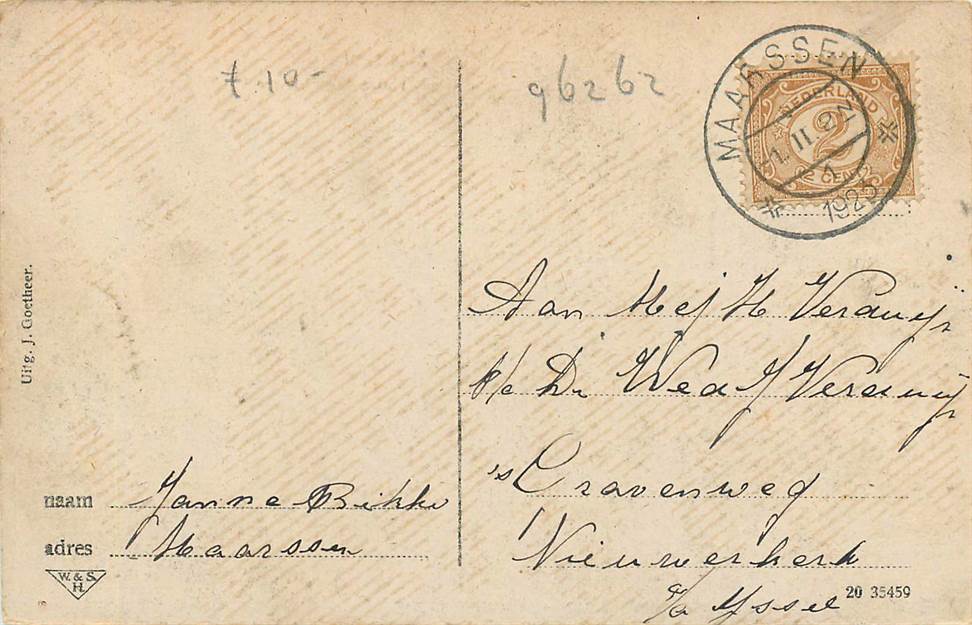 7.10-
96262
MAARSSEN
1925
NEDERLAND
2
2 CENT
Uitg. J. Goetheer.
Aan Mej H Verduijn
p/a De Wed J Verduijn
's Gravenweg
Nieuwerkerk
a/d Yssel
naam Janna Rikke
adres Maarssen
W. & S.
H.
20 35459